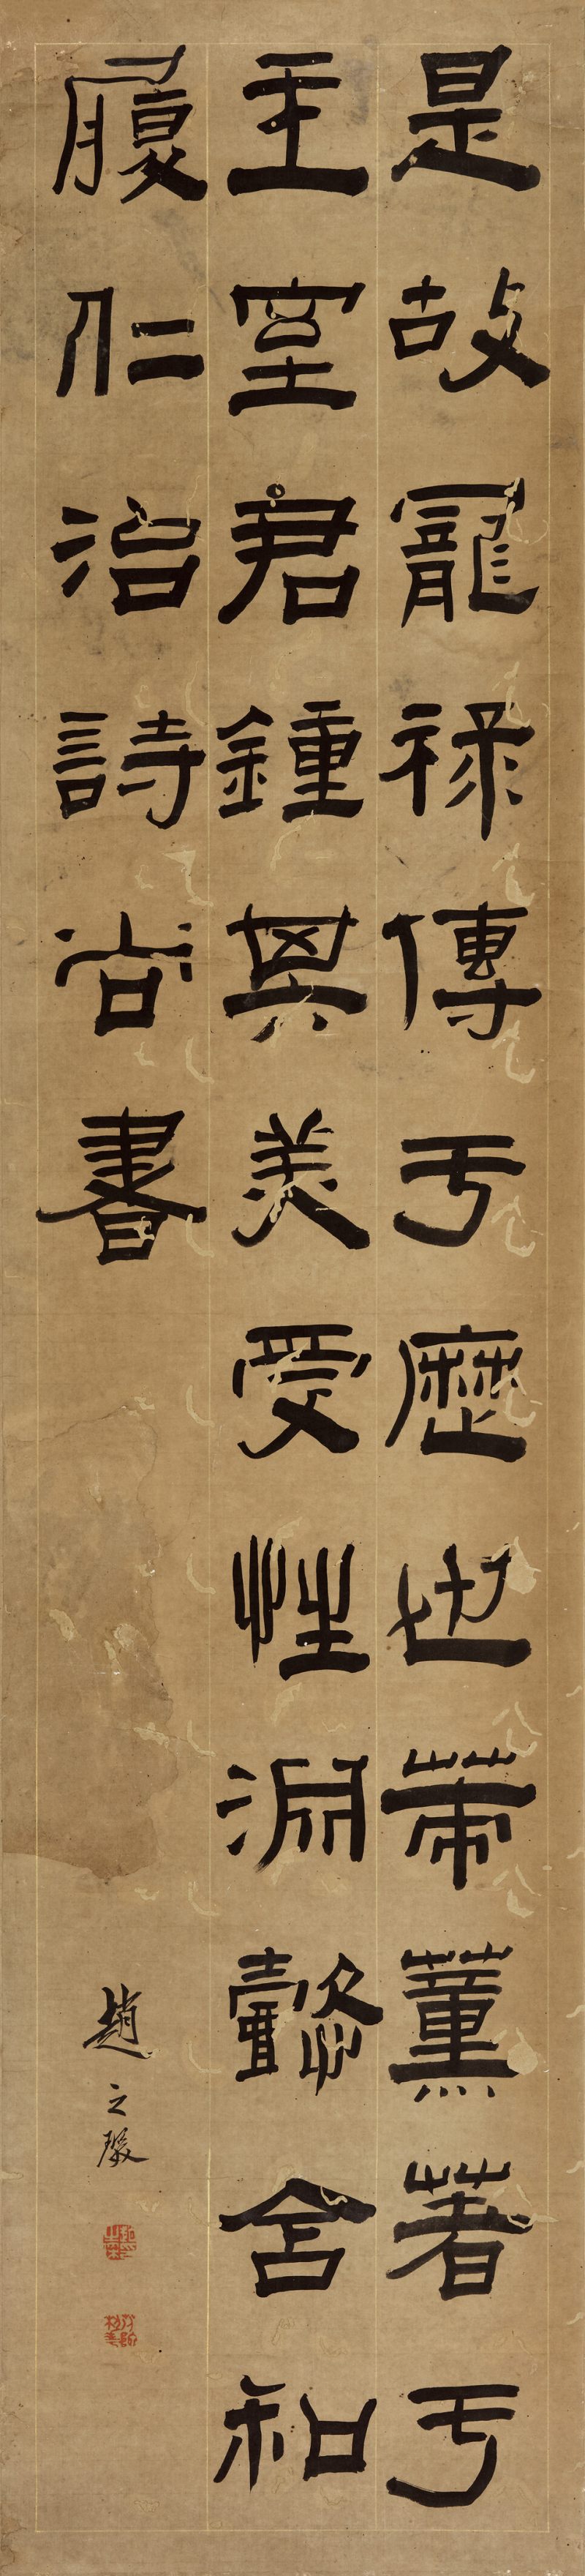 是故寵祿傳于歷世策薰著于
王室君鍾其美受性淵懿含和
履仁治詩尚書
趙之琛